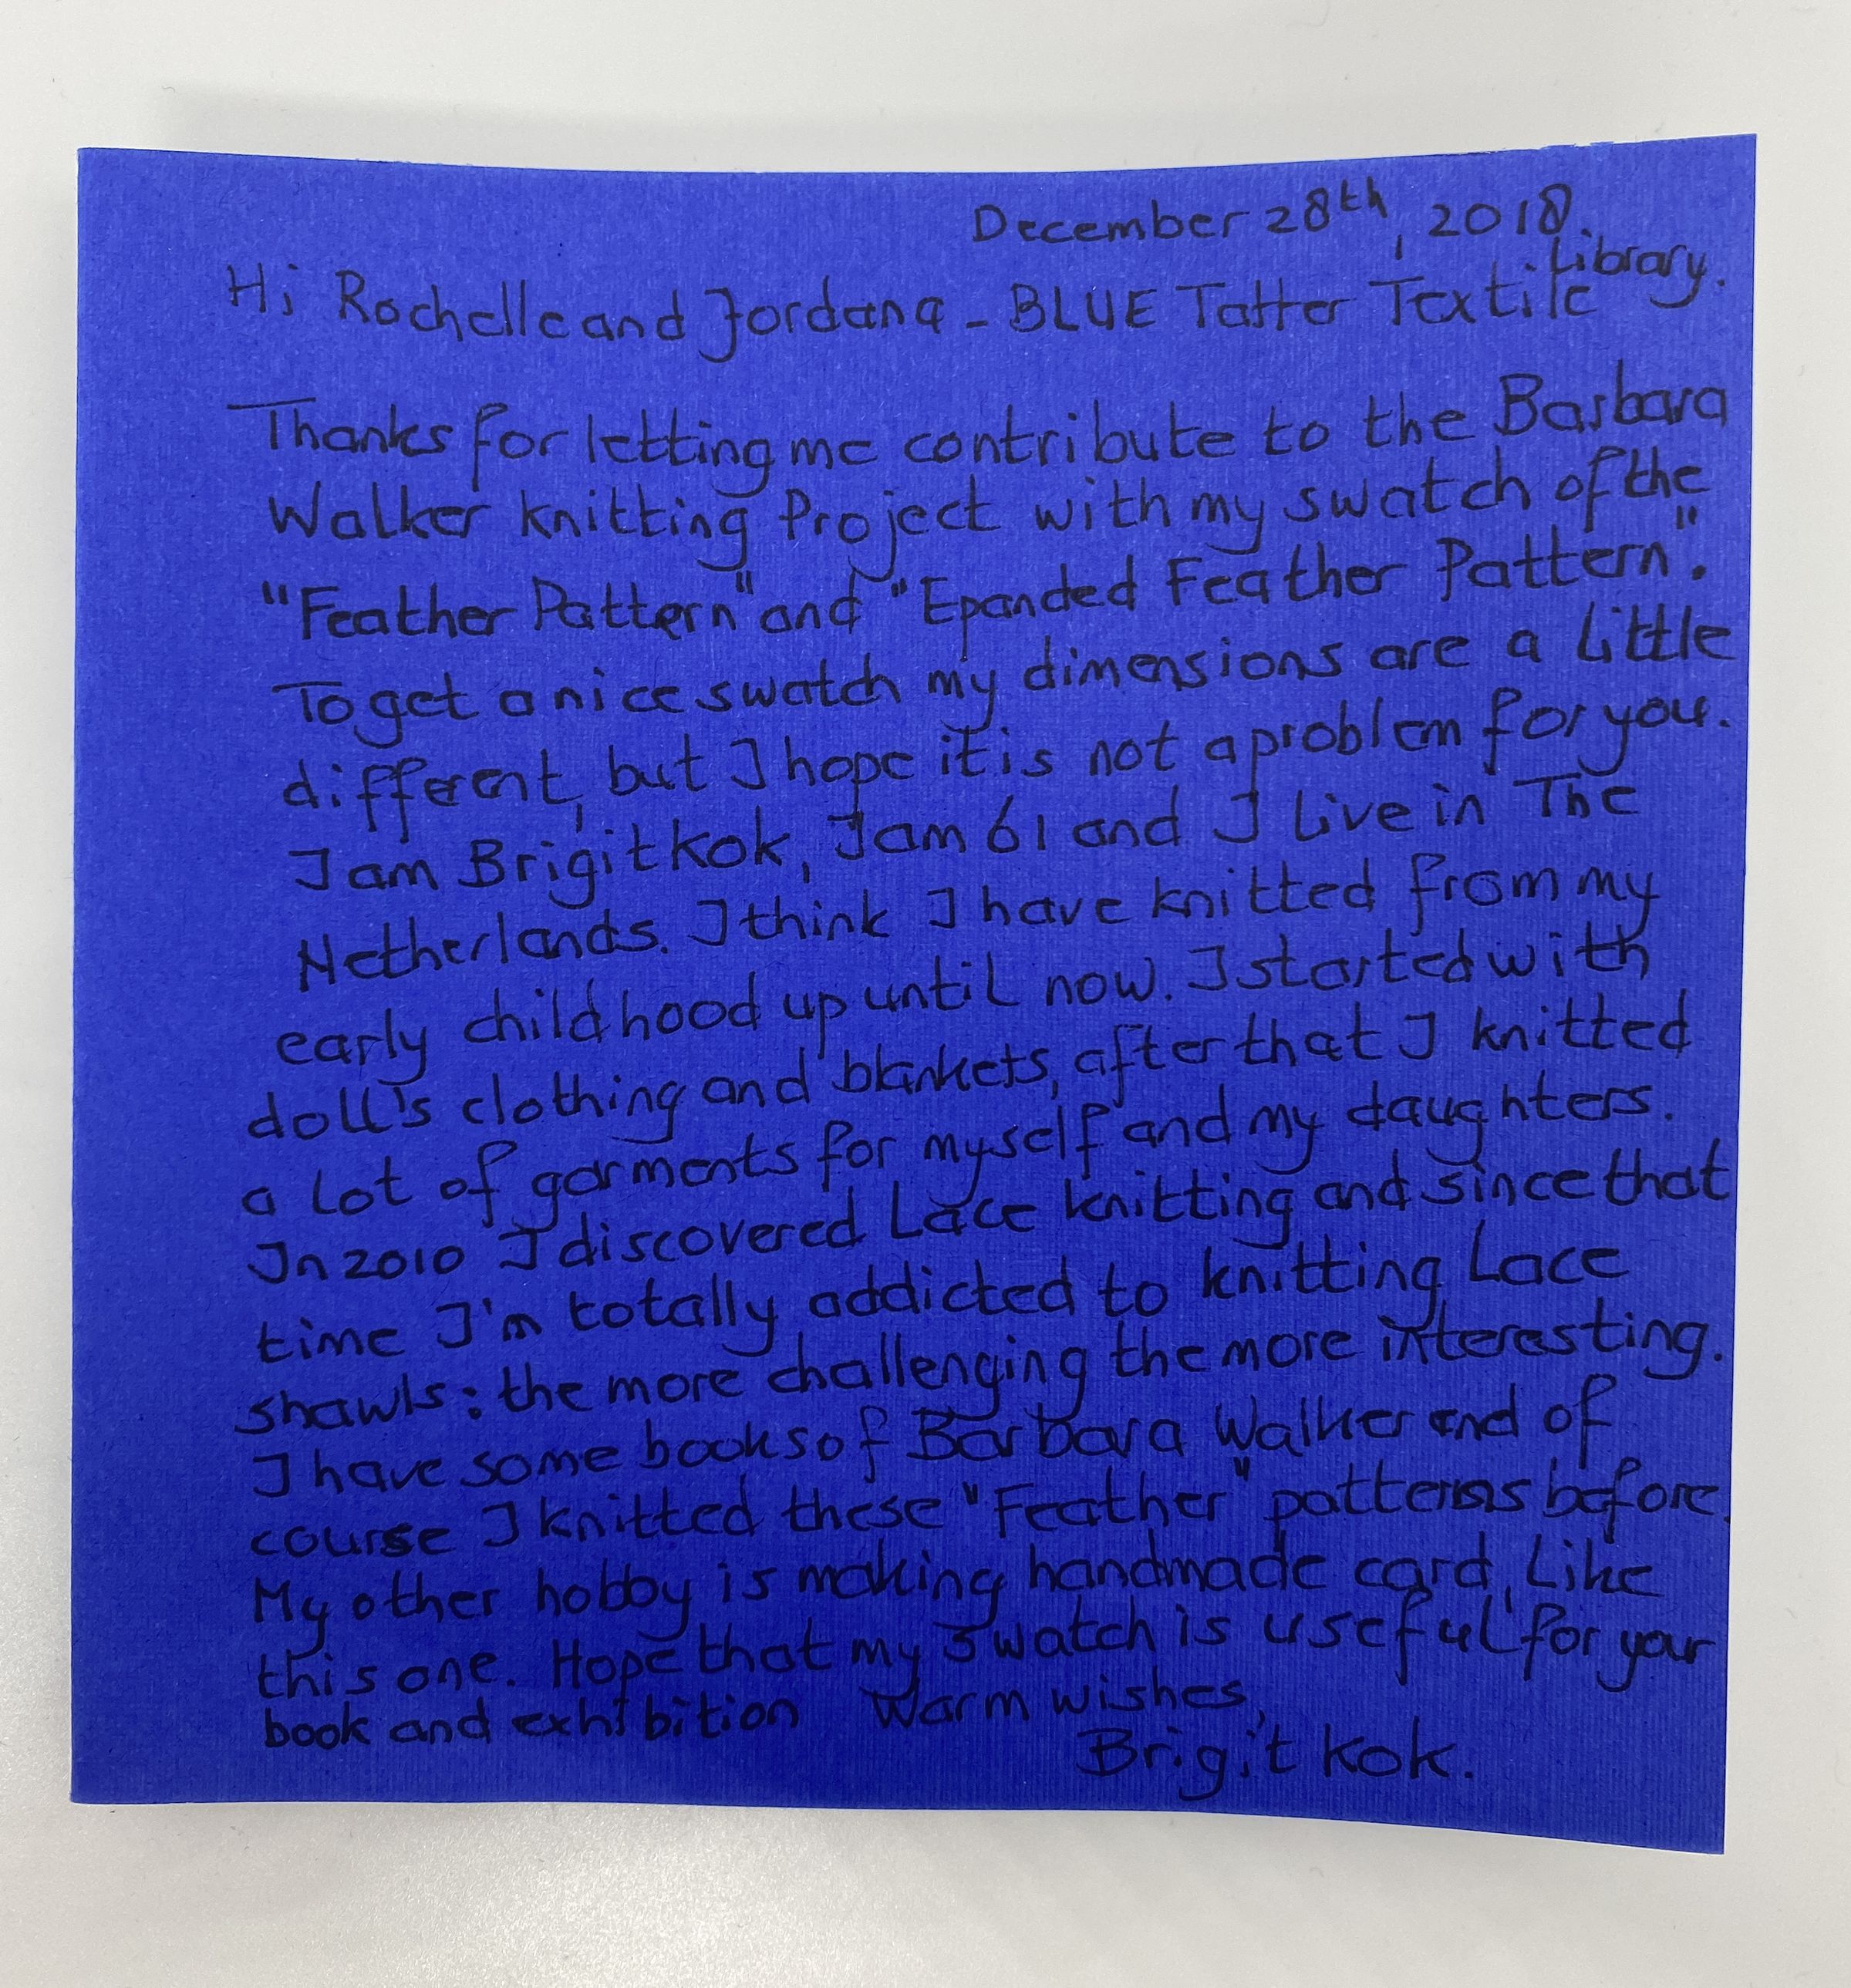 December 28th, 2018.
Hi Rochelle and Jordana - BLUE Tatter Textile Library.
Thanks for letting me contribute to the Barbara
Walker knitting Project with my swatch of the
"Feather Pattern" and "Epanded Feather Pattern".
To get a nice swatch my dimensions are a little
different, but I hope it is not a problem for you.
I am Brigit Kok, I am 61 and I live in The
Netherlands. I think I have knitted from my
early childhood up until now. I started with
doll's clothing and blankets, after that I knitted
a lot of garments for myself and my daughters.
In 2010 I discovered Lace knitting and since that
time I'm totally addicted to knitting Lace
shawls: the more challenging the more interesting.
I have some books of Barbara Walker and of
course I knitted these "Feather" patterns before.
My other hobby is making handmade card, like
this one. Hope that my swatch is useful for your
book and exhibition Warm wishes,
Brigit Kok.